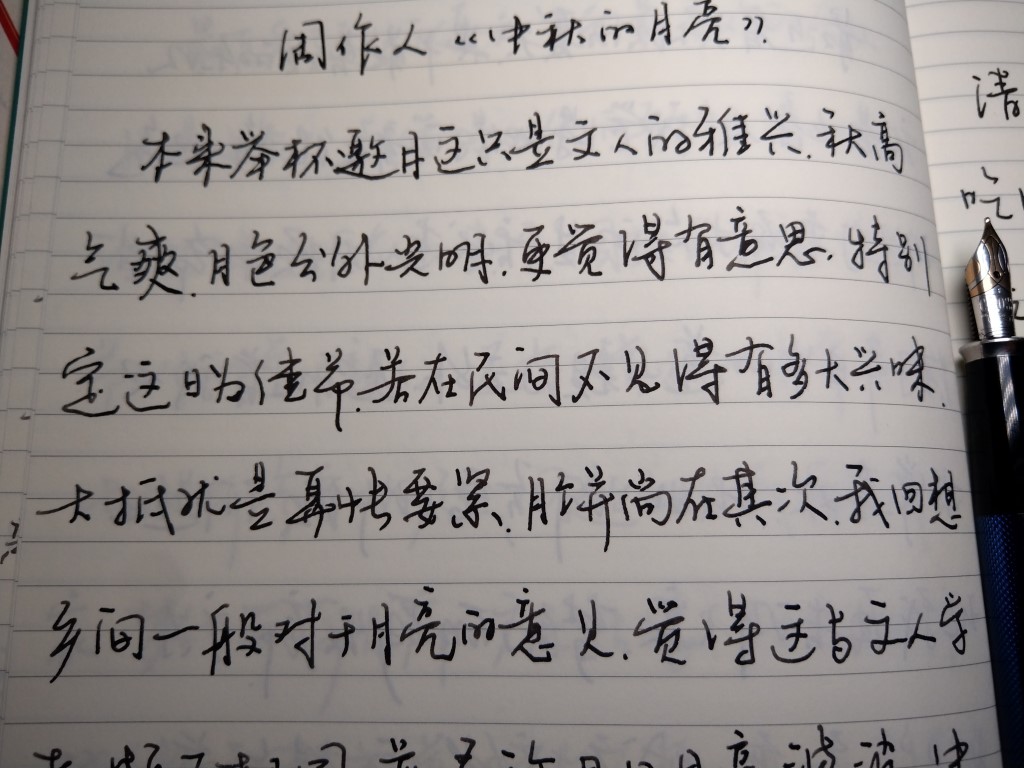 周作人《中秋的月亮》
本来举杯邀月这只是文人的雅兴,秋高
气爽,月色分外光明,更觉得有意思,特别
定这日为佳节,若在民间不见得有多大兴味,
大抵就是算帐要紧,月饼尚在其次,我回想
乡间一般对于月亮的意见,觉得这与文人学
清
吃